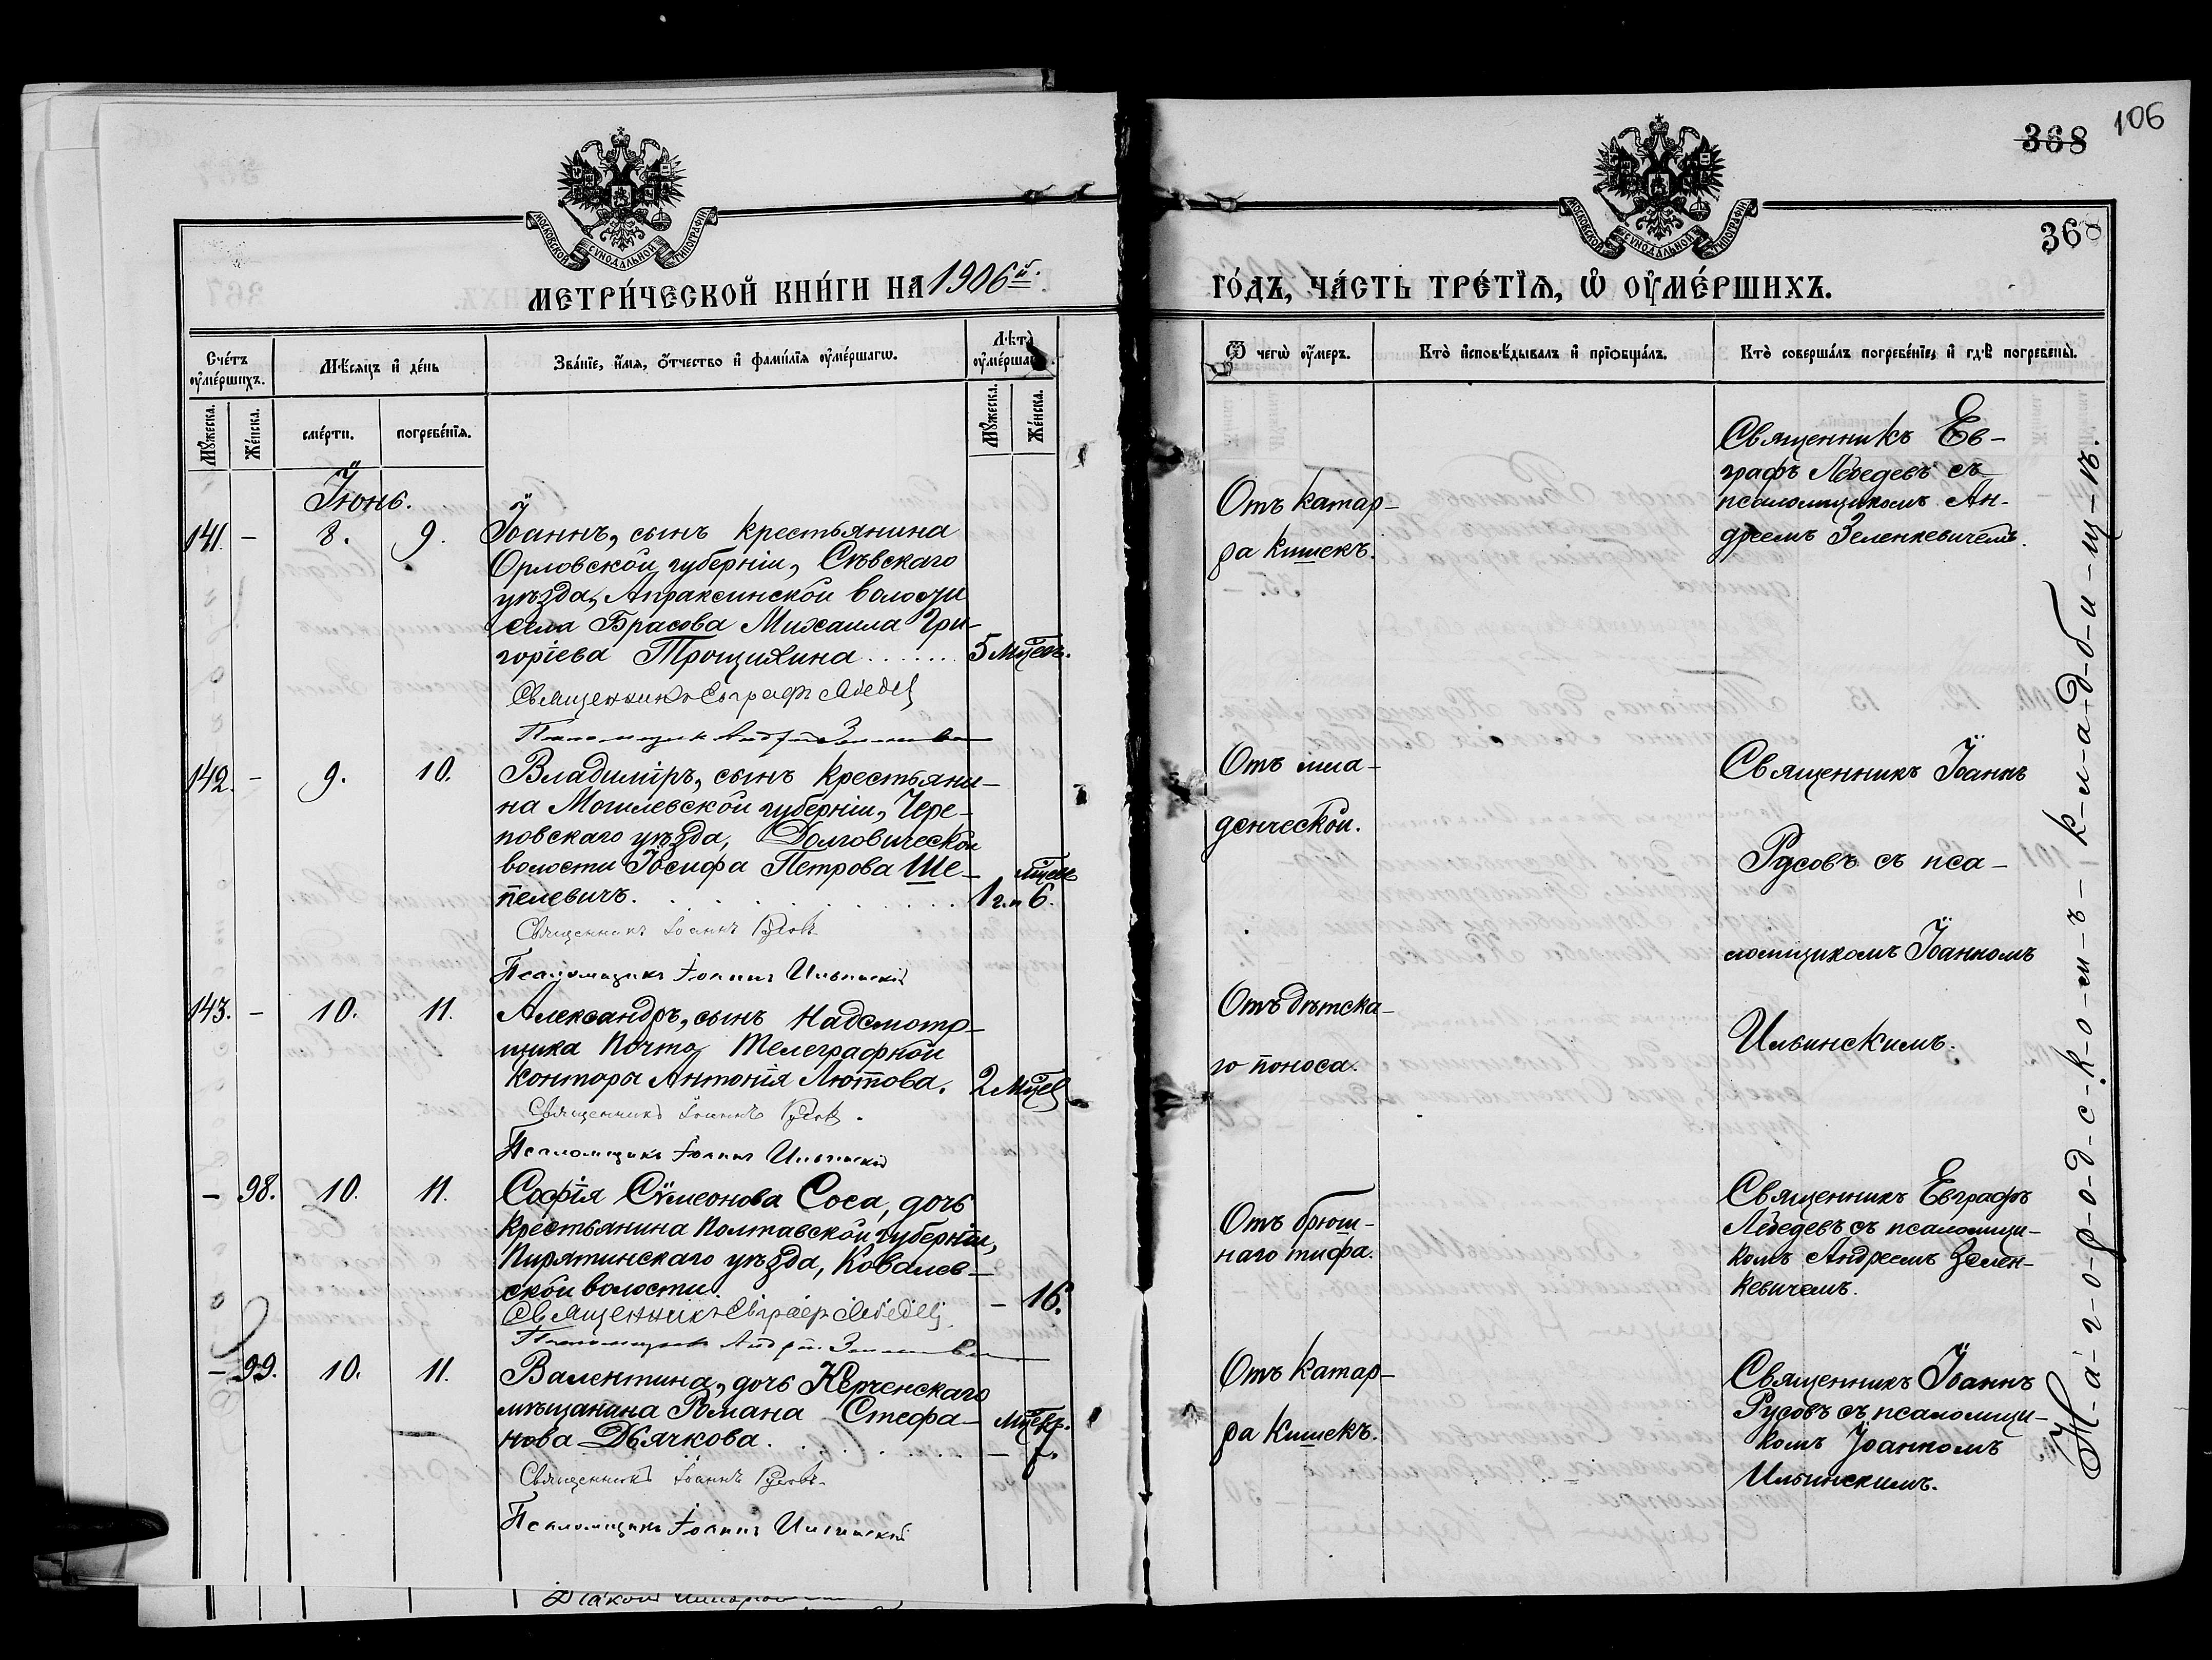 106
368
368
МОСКОВСКОЙ СѴНОДАЛЬНОЙ ТИПОГРАФІИ
МОСКОВСКОЙ СѴНОДАЛЬНОЙ ТИПОГРАФІИ
МЕТРИ́ЧЕСКОЙ КНИ́ГИ НА 1906й.
ГО́ДЪ, ЧА́СТЬ ТРЕ́ТІѦ, Ѡ ОУМЕ́РШИХЪ.
Счетъ оумершихъ.
Мѣсѧцъ и день
Званіе, имѧ, отчество и фамиліѧ оумершагѡ.
Лѣта оумершагѡ.
Ѿ чегѡ оумеръ.
Кто исповѣдывалъ и пріобщалъ.
Кто совершалъ погребеніе, и гдѣ погребены.
Мужеска.
Женска.
смерти.
погребеніѧ.
Мужеска.
Женска.
Іюнь.
141. - 8. 9.
Іоаннъ, сынъ крестьянина
Орловской губерніи, Сѣвскаго
уѣзда, Апраксинской волости
села Брасова Михаила Гри-
горіева Трощихина . . . . . . . 5 Мцевъ.
Священникъ Евграфъ Лебедев
Псаломщик Андрей
Отъ катар-
ра кишекъ.
Священникъ Ев-
графъ Лебедевъ съ
псаломщикомъ Ан-
дреемъ Зеленкевичемъ.
142. - 9. 10.
Владиміръ, сынъ крестьяни-
на Могилевской губерніи, Чере-
повскаго уѣзда, Долговической
волости Іосифа Петрова Ше-
пелевичъ. . . . . . . . . 1 г. и 6. мцевъ
Священникъ Іоаннъ Русовъ
Псаломщикъ Іоаннъ Ильинскій
Отъ мла-
денческой.
Священникъ Іоаннъ
Русовъ съ пса-
ломщикомъ Іоанномъ
Ильинскимъ.
143. - 10. 11.
Александръ, сынъ Надсмотр-
щика Почто Телеграфной
Конторы Антонія Лютова. 2 Мцев
Священникъ Іоаннъ Русовъ.
Псаломщикъ Іоаннъ Ильинскій
Отъ дѣтска-
го поноса.
- 98. 10. 11.
Софія Сѵмеонова Соса, дочь
крестьянина Полтавской губерніи,
Пирятинскаго уѣзда, Ковалев-
ской волости. - 16.
Священникъ Евграфъ Лебедев
Псаломщик Андрей
Отъ брюш-
наго тифа.
Священникъ Евграфъ
Лебедевъ съ псаломщи-
комъ Андреемъ Зелен-
кевичемъ.
- 99. 10. 11.
Валентина, дочь Керченскаго
мѣщанина Романа Стефа-
нова Дьячкова . . . . . . - 7. Мцевъ.
Священникъ Іоаннъ Русовъ.
Псаломщикъ Іоаннъ Ильинскій
Отъ катар-
ра кишекъ.
Священникъ Іоаннъ
Русовъ съ псаломщи-
комъ Іоанномъ
Ильинскимъ.
На-г-о-р-о-д-с-к-о-м-ъ- к-л-а-д-б-и-щ-ѣ.
Діаконъ